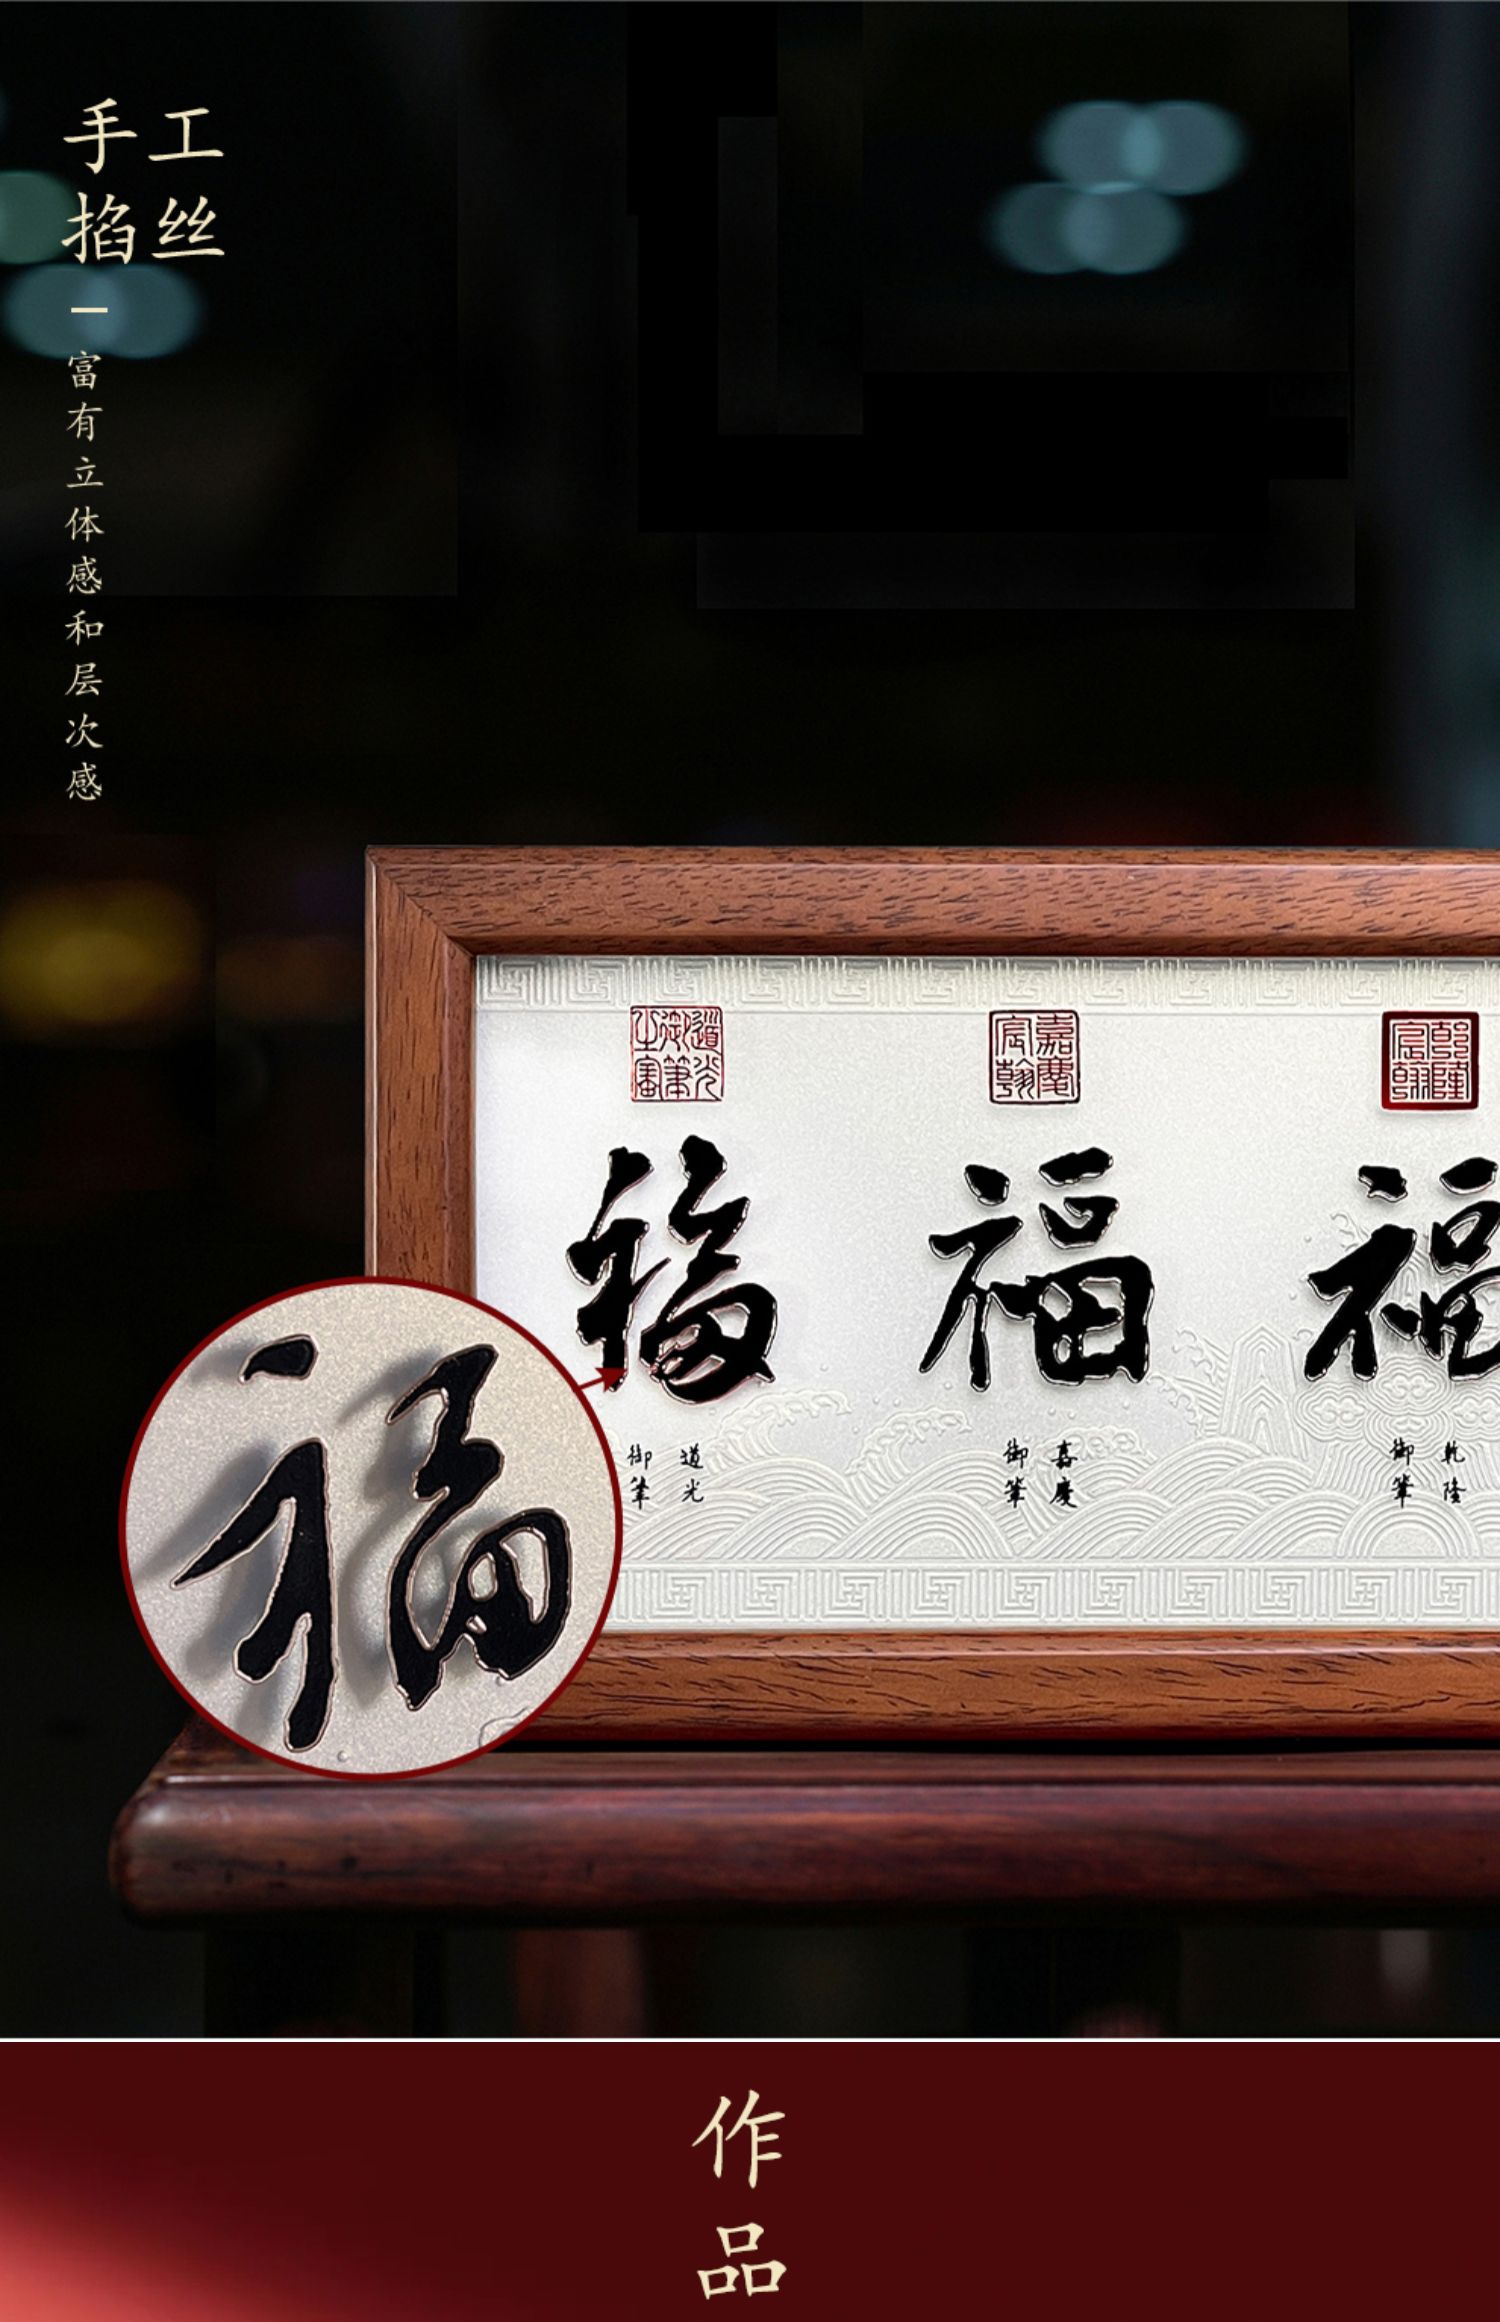 手工
掐丝
富有立体感和层次感
道光御筆之寶
嘉慶宸翰
乾隆宸翰
福
福
福
道光
御筆
嘉慶
御筆
乾隆
御筆
福
作品